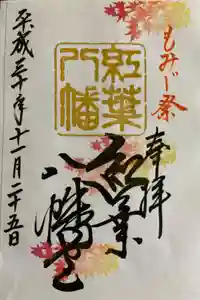 もみじ祭
奉拝
紅葉
八幡
紅葉
八幡宮
平成三十年十一月二十五日